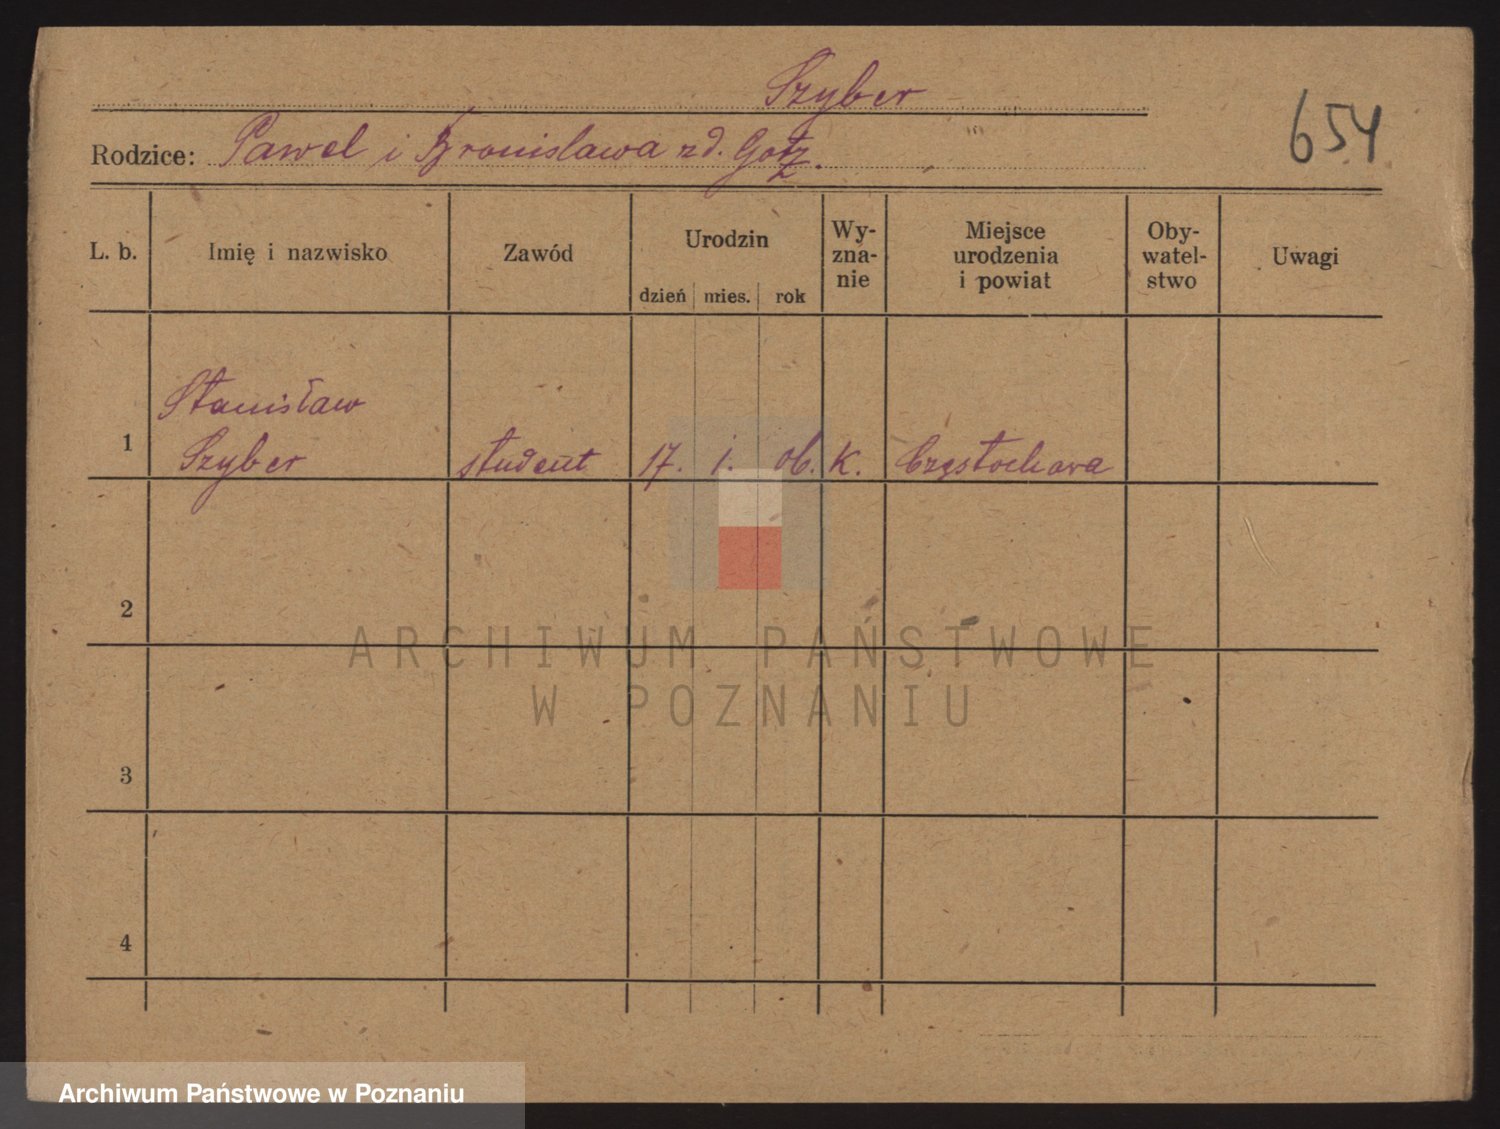 Szyber
654
Rodzice: Pawel i Bronislawa zd. Gotz.
L. b. Imię i nazwisko Zawód Urodzin dzień mies. rok Wy-zna-nie Miejsce urodzenia i powiat Oby-watel-stwo Uwagi
Stanisław
1 Szyber student 17. 1. 06. K. Częstochowa
2
ARCHIWUM PAŃSTWOWE
W POZNANIU
3
4
Archiwum Państwowe w Poznaniu